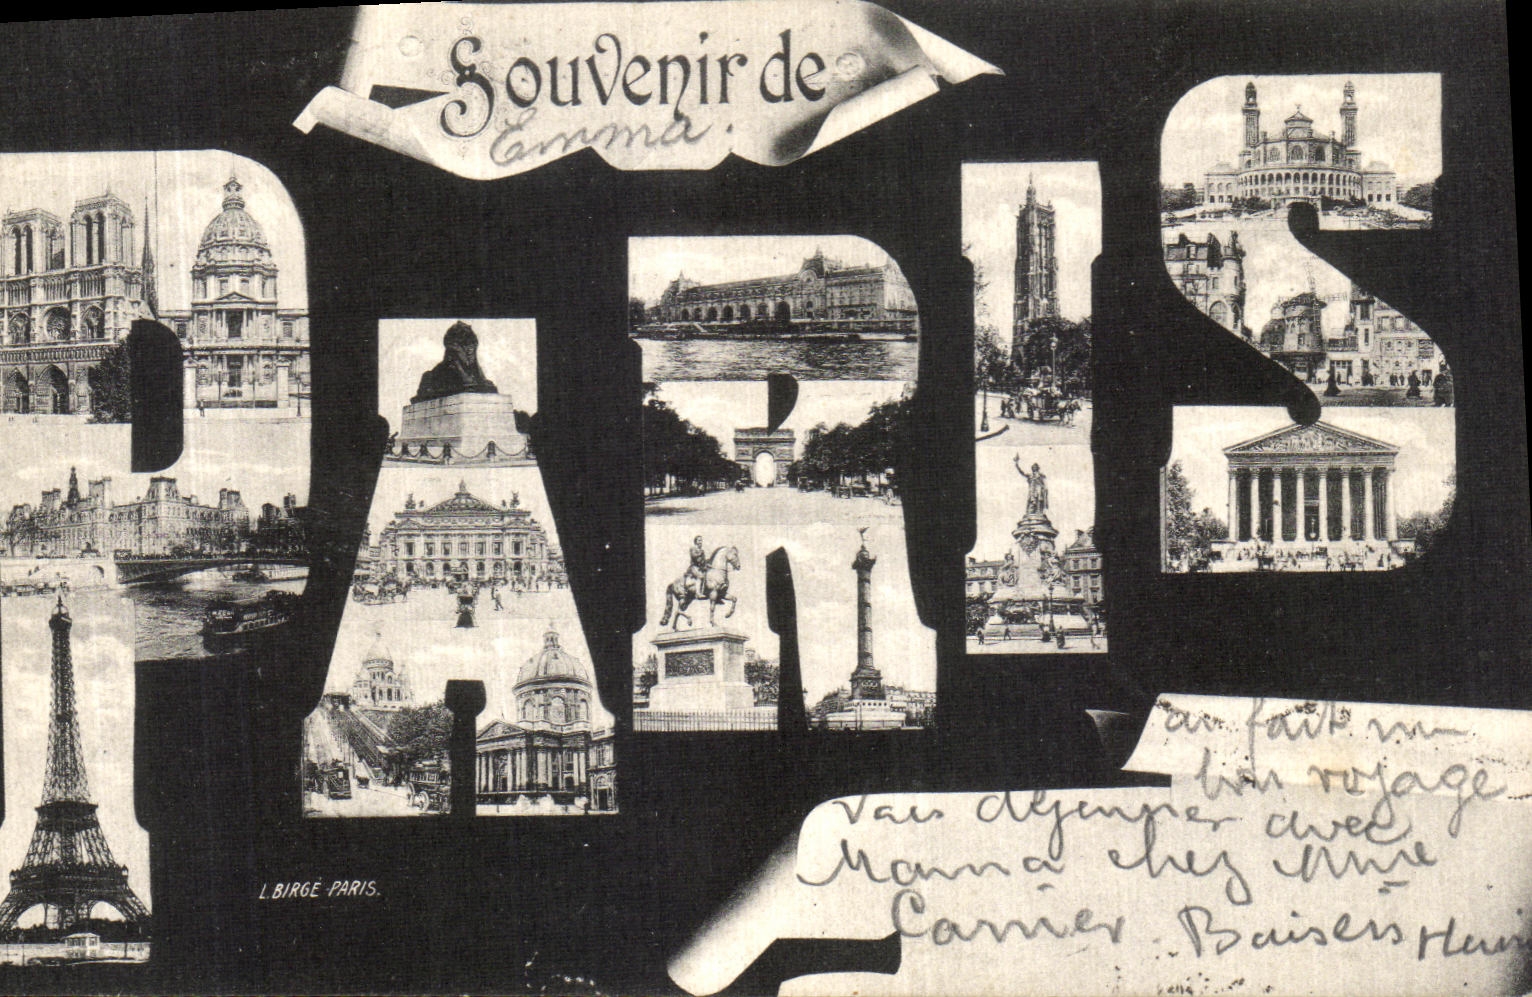 Souvenir de
Emma.
PARIS
ai fait un
bon voyage
vais déjeuner avec
Mama chez Mme
Carrier Baisers
L. BIRGÉ PARIS.